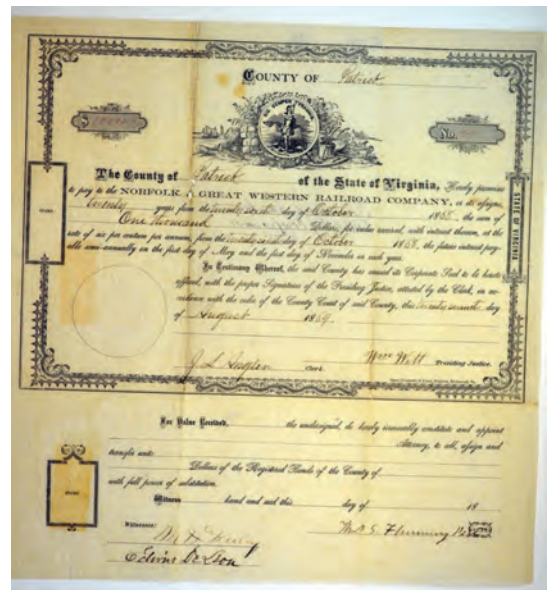 COUNTY OF Patrick
SIC SEMPER TYRANNIS
$ 1000
No.
The County of Patrick of the State of Virginia, Hereby promises
to pay to the NORFOLK & GREAT WESTERN RAILROAD COMPANY, or its assigns,
twenty years from the day of October 1858, the sum of
One thousand Dollars, for value received, with interest thereon, at the
rate of six per centum per annum, from the day of October 1858, the future interest pay-
able semi-annually on the first day of May and the first day of November in each year.
In Testimony Whereof, the said County has caused its Corporate Seal to be hereto
affixed, with the proper Signatures of the Presiding Justice, attested by the Clerk, in ac-
cordance with the order of the County Court of said County, this twenty seventh day
of August 1859.
STATE OF VIRGINIA
Clerk.
Presiding Justice.
For Value Received, the undersigned, do hereby irrevocably constitute and appoint
Attorney, to sell, assign and
transfer unto
Dollars of the Registered Bonds of the County of
with full power of substitution.
Witness hand and seal this day of 18
Witnesses:
Edwin De Leon